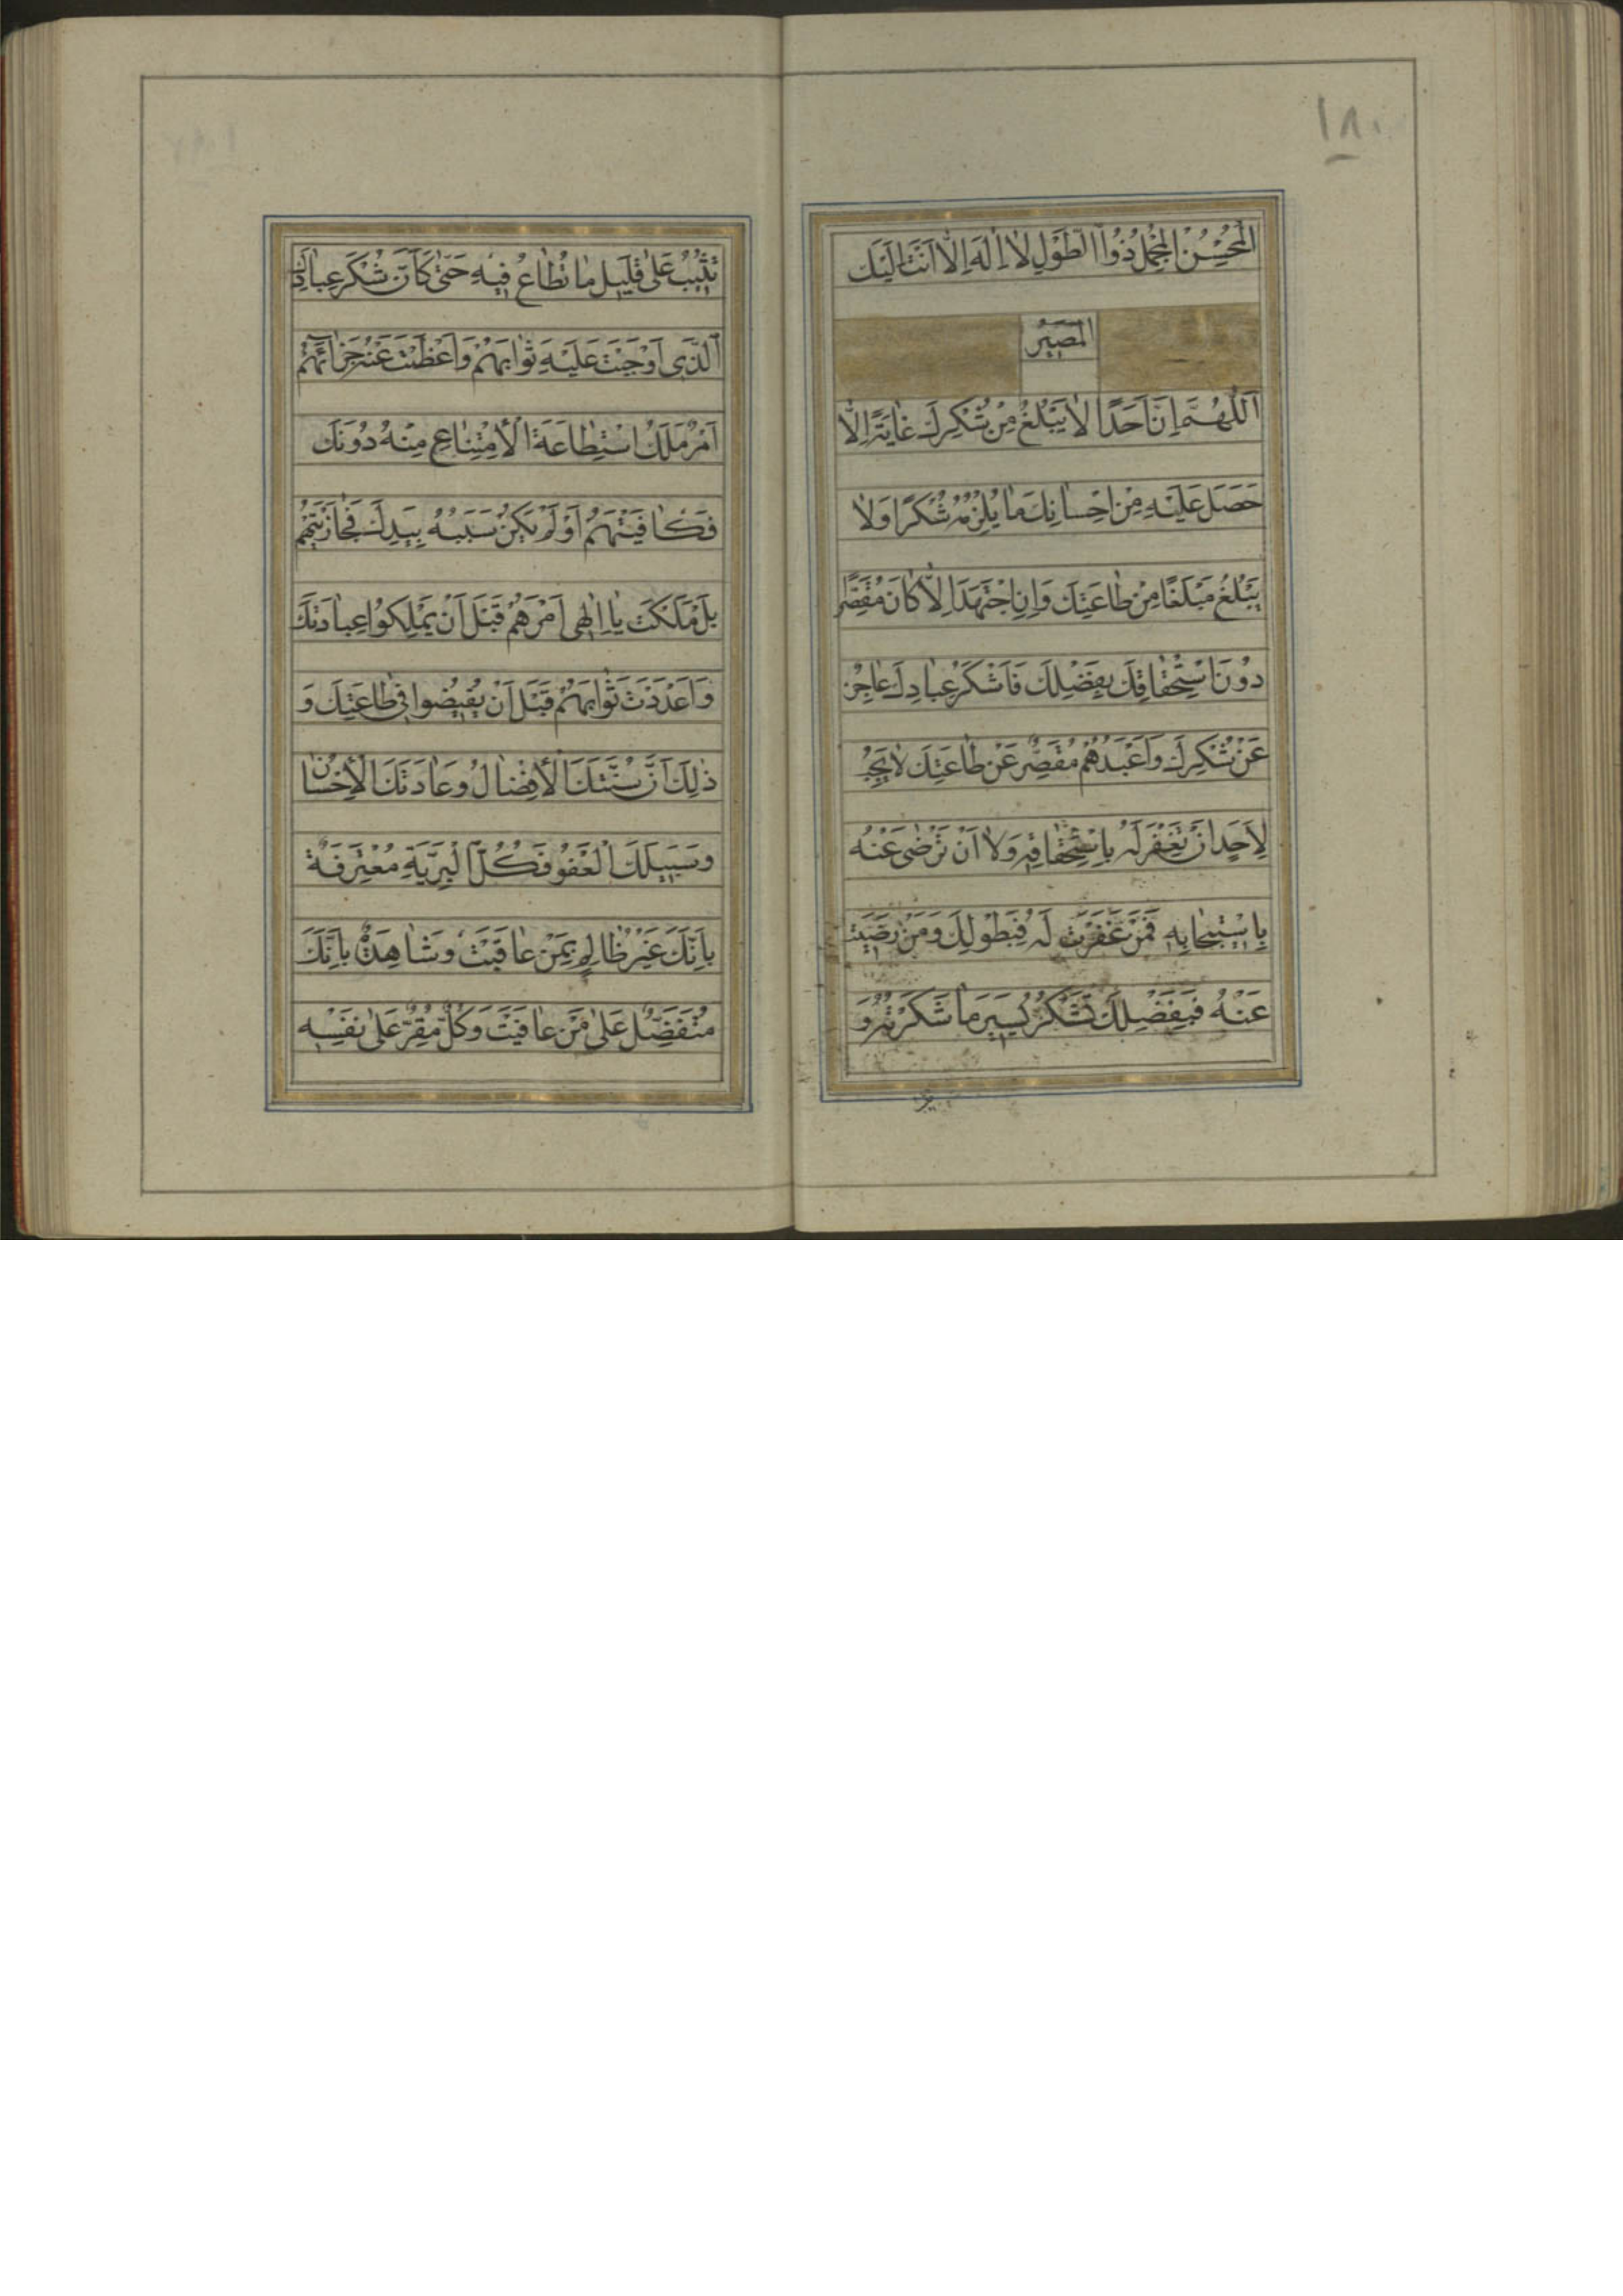 ١٨٠
اَلْمُحْسِنُ الْمُجْمِلُ ذُوا الطَّوْلِ لاٰ اِلٰهَ اِلاّٰ اَنْتَ اِلَيْكَ
الْمَصِيرُ
اَللّٰهُمَّ اِنَّ اَحَدًا لاٰ يَبْلُغُ مِنْ شُكْرِكَ غٰايَةً اِلاّٰ
حَصَلَ عَلَيْهِ مِنْ اِحْسٰانِكَ مٰا يُلْزِمُهُ شُكْرًا وَلاٰ
يَبْلُغُ مَبْلَغًا مِنْ طٰاعَتِكَ وَاِنِ اجْتَهَدَ اِلاّٰ كٰانَ مُقَصِّرًا
دُونَ اسْتِحْقٰاقِكَ بِفَضْلِكَ فَاَشْكَرُ عِبٰادِكَ عٰاجِزٌ
عَنْ شُكْرِكَ وَاَعْبَدُهُمْ مُقَصِّرٌ عَنْ طٰاعَتِكَ لاٰ يَجِبُ
لِاَحَدٍ اَنْ تَغْفِرَ لَهُ بِاسْتِحْقٰاقِهِ وَلاٰ اَنْ تَرْضٰى عَنْهُ
بِاسْتِيجٰابِهِ فَمَنْ غَفَرْتَ لَهُ فَبِطَوْلِكَ وَمَنْ رَضِيتَ
عَنْهُ فَبِفَضْلِكَ تَشْكُرُ يَسِيرَ مٰا شَكَرْتَهُ وَ
تُثِيبُ عَلٰى قَلِيلِ مٰا تُطٰاعُ فِيهِ حَتّٰى كَاَنَّ شُكْرَ عِبٰادِكَ
اَلَّذِى اَوْجَبْتَ عَلَيْهِ ثَوٰابَهُمْ وَاَعْظَمْتَ عَنْهُ جَزٰائَهُمْ
اَمْرٌ مَلَكُوا اسْتِطٰاعَةَ الْاِمْتِنٰاعِ مِنْهُ دُونَكَ
فَكٰافَيْتَهُمْ اَوْ لَمْ يَكُنْ سَبَبُهُ بِيَدِكَ فَجٰازَيْتَهُمْ
بَلْ مَلَكْتَ يٰا اِلٰهِى اَمْرَهُمْ قَبْلَ اَنْ يَمْلِكُوا عِبٰادَتَكَ
وَاَعْدَدْتَ ثَوٰابَهُمْ قَبْلَ اَنْ يُفِيضُوا فِى طٰاعَتِكَ وَ
ذٰلِكَ اَنَّ سُنَّتَكَ الْاِفْضٰالُ وَعٰادَتَكَ الْاِحْسٰانُ
وَسَبِيلَكَ الْعَفْوُ فَكُلُّ الْبَرِيَّةِ مُعْتَرِفَةٌ
بِاَنَّكَ غَيْرُ ظٰالِمٍ لِمَنْ عٰاقَبْتَ وَشٰاهِدَةٌ بِاَنَّكَ
مُتَفَضِّلٌ عَلٰى مَنْ عٰافَيْتَ وَكُلٌّ مُقِرٌّ عَلٰى نَفْسِهِ